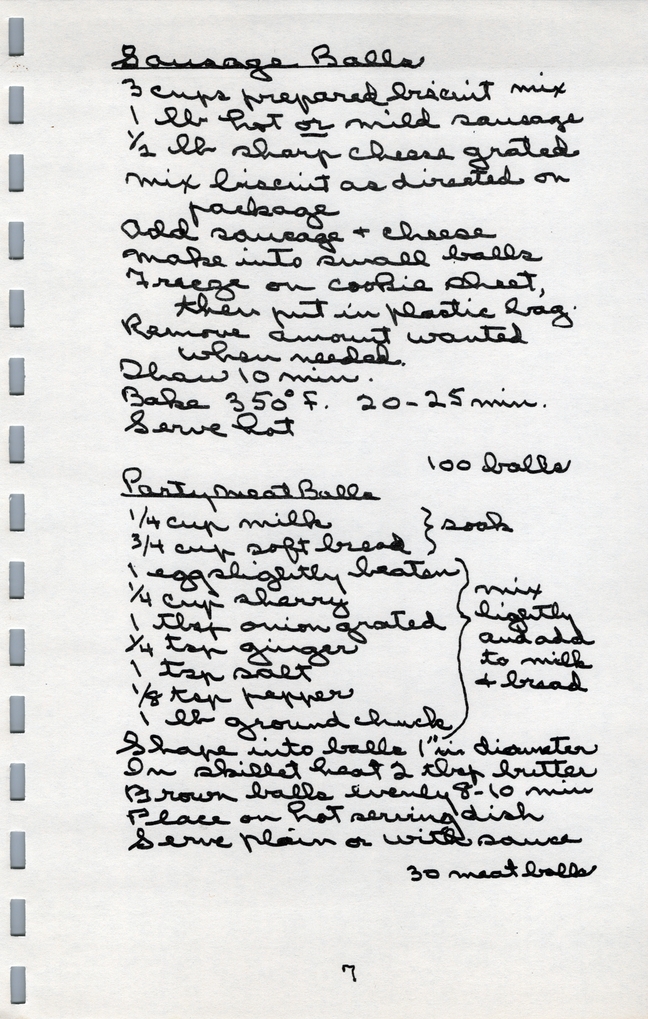 Sausage Balls
3 cups prepared biscuit mix
1 lb hot or mild sausage
1/2 lb sharp cheese grated
mix biscuit as directed on
package
Add sausage + cheese
make into small balls
Freeze on cookie sheet,
then put in plastic bag.
Remove amount wanted
when needed.
Thaw 10 min.
Bake 350° F. 20-25 min.
Serve hot
100 balls
Party Meat Balls
1/4 cup milk
3/4 cup soft bread } soak
1 egg slightly beaten
1/4 cup sherry
1 tbsp onion grated
1/4 tsp ginger
1 tsp salt
1/8 tsp pepper
1 lb ground chuck
} mix
lightly
and add
to milk
+ bread
Shape into balls 1" in diameter
In skillet heat 2 tbsp butter
Brown balls evenly 8-10 min
Place on hot serving dish
Serve plain or with sauce
30 meat balls
7